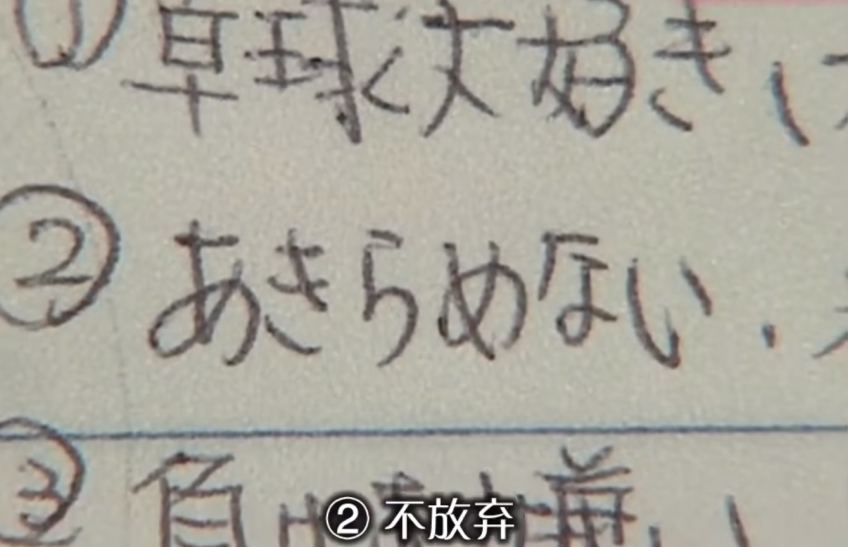 ① 卓球大好き
② あきらめない.
③ 負けず嫌い
② 不放弃